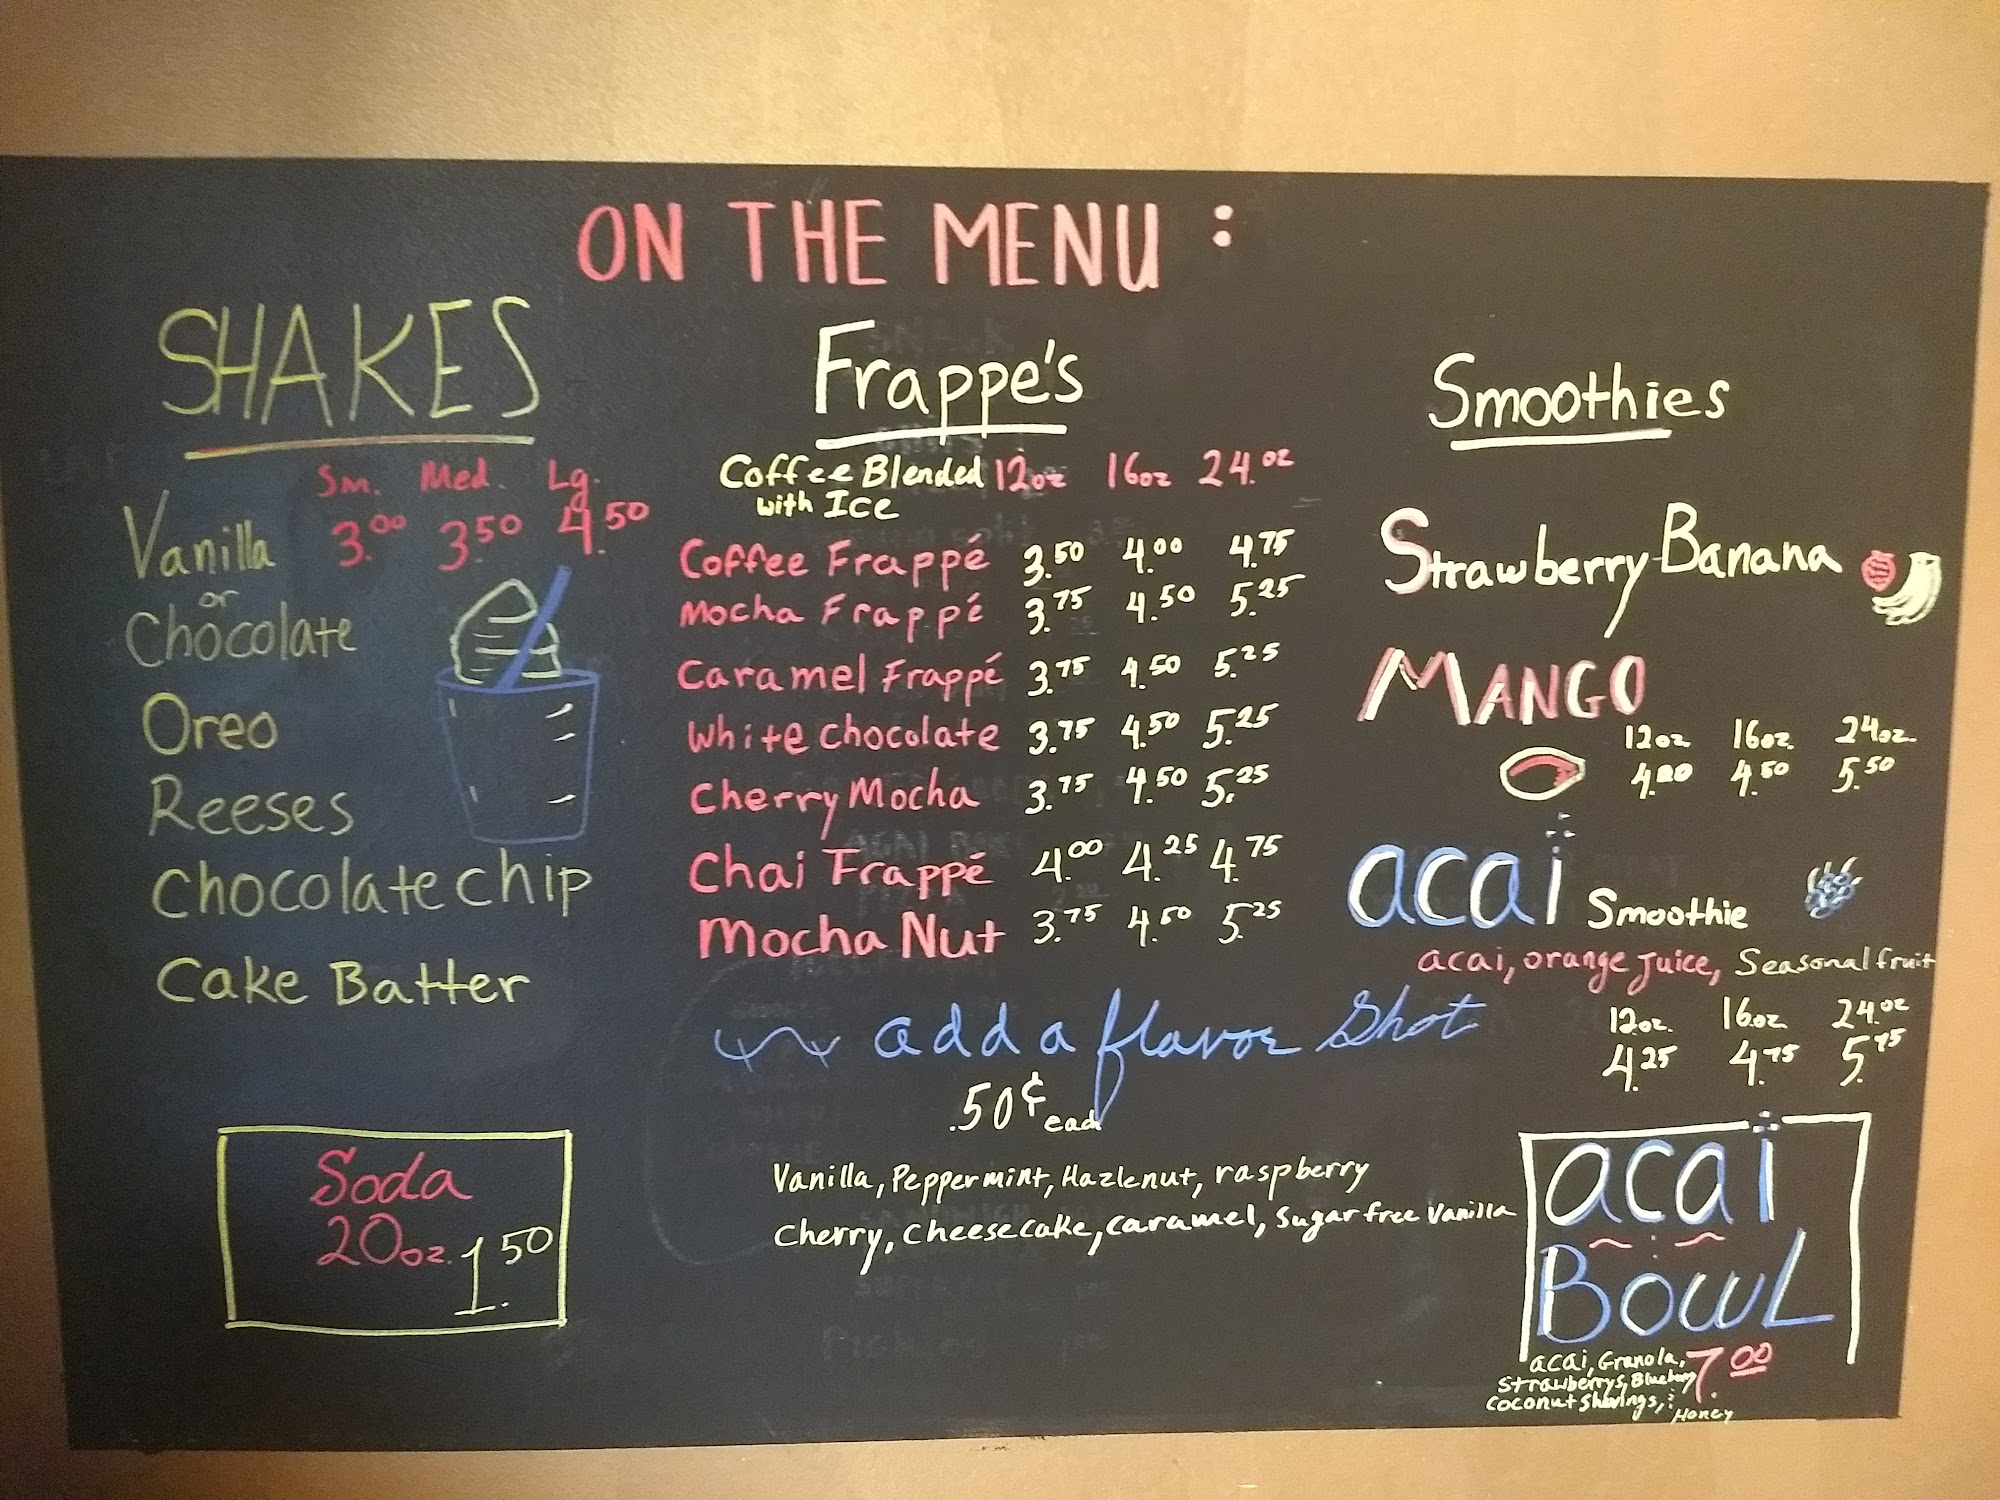 ON THE MENU :
SHAKES
Sm. Med. Lg.
Vanilla 3.00 3.50 4.50
or
Chocolate
Oreo
Reeses
Chocolate chip
Cake Batter
Soda
20oz. 1.50
Frappe's
Coffee Blended 12oz 16oz 24.oz
with Ice
Coffee Frappé 3.50 4.00 4.75
Mocha Frappé 3.75 4.50 5.25
Caramel Frappé 3.75 4.50 5.25
White chocolate 3.75 4.50 5.25
Cherry Mocha 3.75 4.50 5.25
Chai Frappé 4.00 4.25 4.75
Mocha Nut 3.75 4.50 5.25
add a flavor Shot
.50¢ each
Vanilla, Peppermint, Hazlenut, raspberry
Cherry, Cheesecake, Caramel, Sugar free Vanilla
Smoothies
Strawberry-Banana
MANGO
12oz 16oz. 24oz.
4.00 4.50 5.50
acai Smoothie
acai, orange juice, Seasonal fruit
12oz. 16oz 24.oz
4.25 4.75 5.75
acai
BOWL
acai, Granola, 7.00
Strawberrys, Blueberry
Coconut Shavings,
Honey